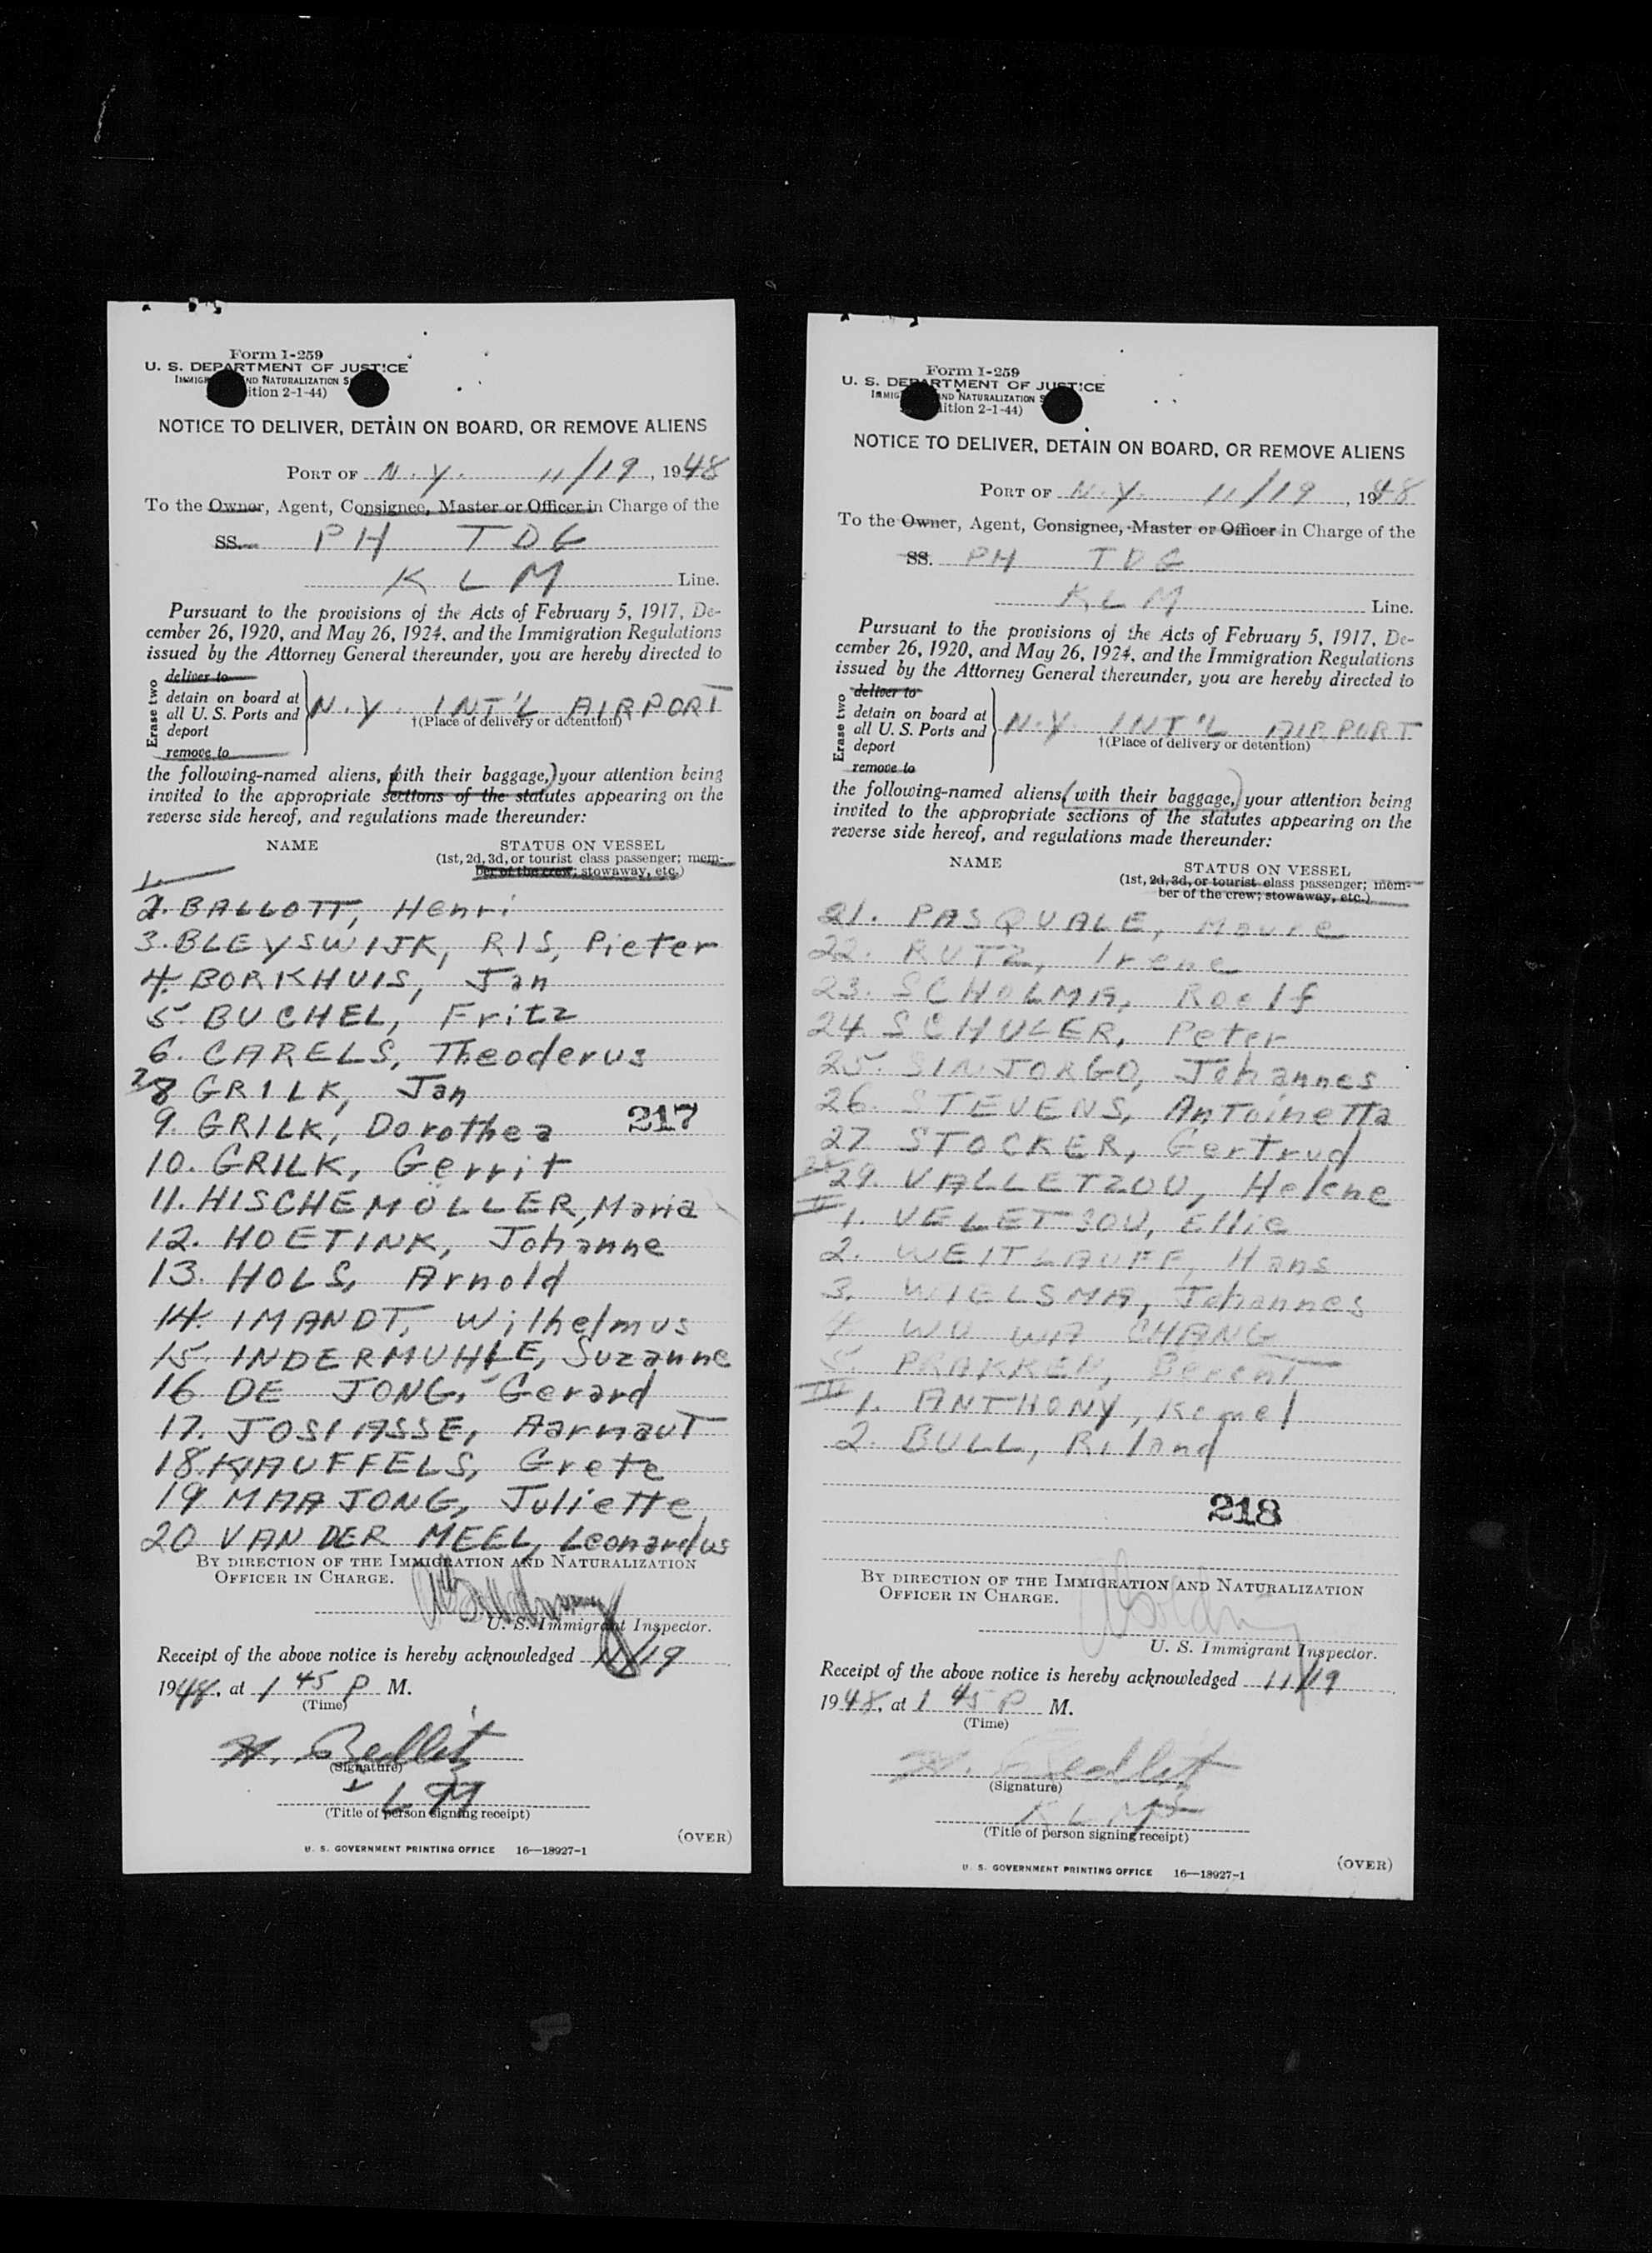 Form I-259
U. S. DEPARTMENT OF JUSTICE
IMMIGRATION AND NATURALIZATION S
(Edition 2-1-44)
NOTICE TO DELIVER, DETAIN ON BOARD, OR REMOVE ALIENS
PORT OF N.Y. 11/19, 1948
To the Owner, Agent, Consignee, Master or Officer in Charge of the
SS. PH TDG
KLM Line.
Pursuant to the provisions of the Acts of February 5, 1917, De-
cember 26, 1920, and May 26, 1924, and the Immigration Regulations
issued by the Attorney General thereunder, you are hereby directed to
Erase two
deliver to
detain on board at
all U. S. Ports and
deport
remove to
N.Y. INT'L AIRPORT
†(Place of delivery or detention)
the following-named aliens, (with their baggage,) your attention being
invited to the appropriate sections of the statutes appearing on the
reverse side hereof, and regulations made thereunder:
NAME STATUS ON VESSEL
(1st, 2d, 3d, or tourist class passenger; mem-
ber of the crew; stowaway, etc.)
1.
2. BALLOTT, Henri
3. BLEYSWIJK, RIS, Pieter
4. BORKHUIS, Jan
5. BUCHEL, Fritz
6. CARELS, Theoderus
7/8 GRILK, Jan
9. GRILK, Dorothea 217
10. GRILK, Gerrit
11. HISCHEMOLLER, Maria
12. HOETINK, Johanne
13. HOLS, Arnold
14. IMANDT, Wilhelmus
15. INDERMUHLE, Suzanne
16 DE JONG, Gerard
17. JOSIASSE, Aarnaut
18. KAUFFELS, Grete
19 MAAJONG, Juliette
20 VAN DER MEEL, Leonardus
BY DIRECTION OF THE IMMIGRATION AND NATURALIZATION
OFFICER IN CHARGE.
U. S. Immigrant Inspector.
Receipt of the above notice is hereby acknowledged 11/19
1948, at 1 45 P M.
(Time)
(Signature)
KLM
(Title of person signing receipt)
(OVER)
U. S. GOVERNMENT PRINTING OFFICE 16—18927-1
Form I-259
U. S. DEPARTMENT OF JUSTICE
IMMIGRATION AND NATURALIZATION S
(Edition 2-1-44)
NOTICE TO DELIVER, DETAIN ON BOARD, OR REMOVE ALIENS
PORT OF N.Y. 11/19, 1948
To the Owner, Agent, Consignee, Master or Officer in Charge of the
SS. PH TDG
KLM Line.
Pursuant to the provisions of the Acts of February 5, 1917, De-
cember 26, 1920, and May 26, 1924, and the Immigration Regulations
issued by the Attorney General thereunder, you are hereby directed to
Erase two
deliver to
detain on board at
all U. S. Ports and
deport
remove to
N.Y. INT'L AIRPORT
†(Place of delivery or detention)
the following-named aliens, (with their baggage,) your attention being
invited to the appropriate sections of the statutes appearing on the
reverse side hereof, and regulations made thereunder:
NAME STATUS ON VESSEL
(1st, 2d, 3d, or tourist class passenger; mem-
ber of the crew; stowaway, etc.)
21. PASQUALE, Maure
22. RUTZ, Irene
23. SCHOLMA, Roelf
24. SCHULER, Peter
25. SINJORGO, Johannes
26. STEVENS, Antoinetta
27 STOCKER, Gertrud
28 29. VALLETZOU, Helene
II 1. VELETSOU, Ellie
2. WEITLAUFF, Hans
3. WIELSMA, Johannes
4. WU WA CHANG
5. PRAKKEN, Berent
III 1. ANTHONY, Kemel
2. BULL, Riland
218
BY DIRECTION OF THE IMMIGRATION AND NATURALIZATION
OFFICER IN CHARGE.
U. S. Immigrant Inspector.
Receipt of the above notice is hereby acknowledged 11/19
1948, at 1 45 P M.
(Time)
(Signature)
KLM
(Title of person signing receipt)
(OVER)
U. S. GOVERNMENT PRINTING OFFICE 16—18927-1